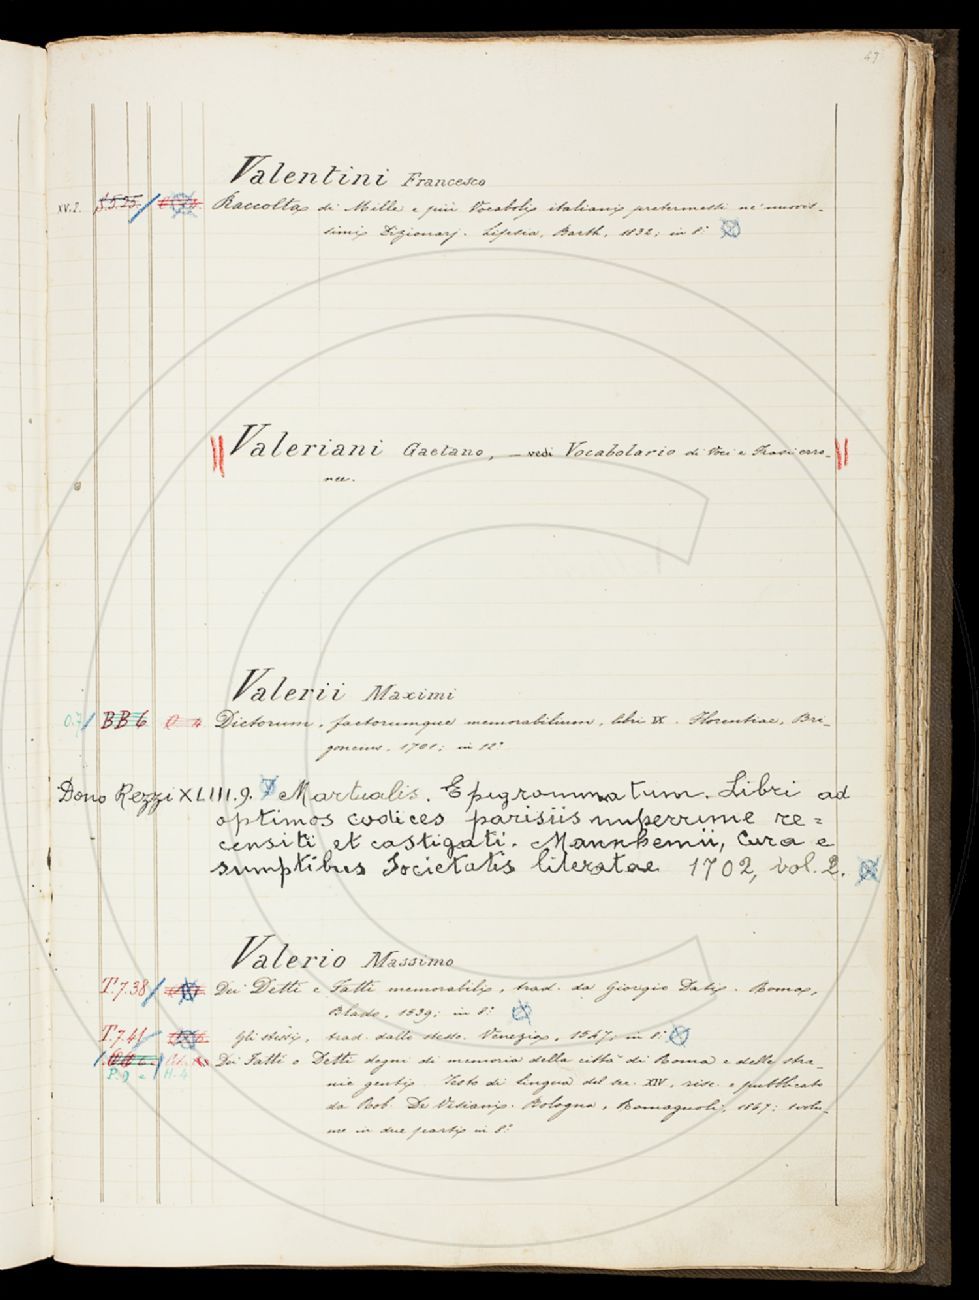 47
Valentini Francesco
XV.7. Raccolta di Mille e più Vocaboli italiani pretermessi ne' nuovis-
simi Dizionarj. Lipsia, Barth, 1832; in 8°
Valeriani Gaetano, — vedi Vocabolario di Voci e Frasi erro-
nee.
Valerii Maximi
O.7 BB 6 O 4 Dictorum, factorumque memorabilium, libri IX. Florentiae, Bri-
goncius, 1701; in 12°
Dono Rezzi XLIII.9. Martialis. Epigrammatum. Libri ad
optimos codices parisiis nuperrime re=
censiti et castigati. Mannhemii, Cura e
sumptibus Societatis literatae 1702, vol. 2.
Valerio Massimo
T.7.38 Dei Detti e Fatti memorabili, trad. da Giorgio Dati. Roma,
Blado, 1539; in 8°
T.7.41 Gli stessi, trad. dallo stesso. Venezia, 1547; in 8°
Dei Fatti e Detti degni di memoria della città di Roma e delle stra-
P.9 H.4 nie genti. Testo di lingua del sec. XIV, risc. e pubblicato
da Rob. De Visiani. Bologna, Romagnoli, 1867; volu-
me in due parti in 8°